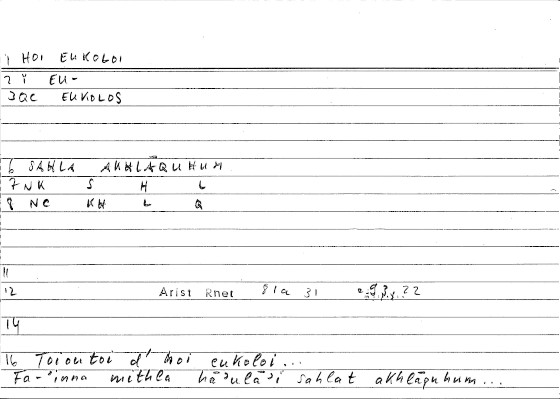 1 HOI EUKOLOI
2 Ï EU-
3 QC EUKOLOS
6 SAHLA AKHLĀQUHUM
7 NK S H L
8 NC KH L Q
11
12 Arist Rhet 81a 31 93, 22
14
16 Toioutoi d' hoi eukoloi...
Fa-ʾinna mithla hāʾulāʾi sahlat akhlāquhum...